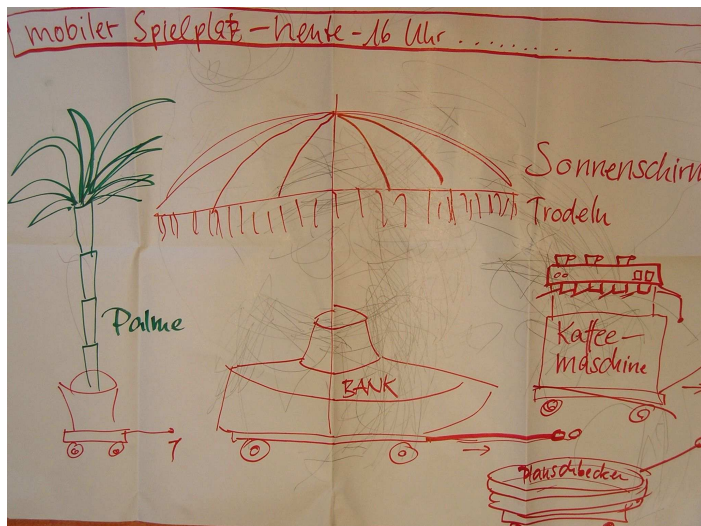 mobiler Spielplatz – heute – 16 Uhr ..........
Sonnenschirm
Trodeln
Palme
Kaffee-
maschine
BANK
Planschbecken